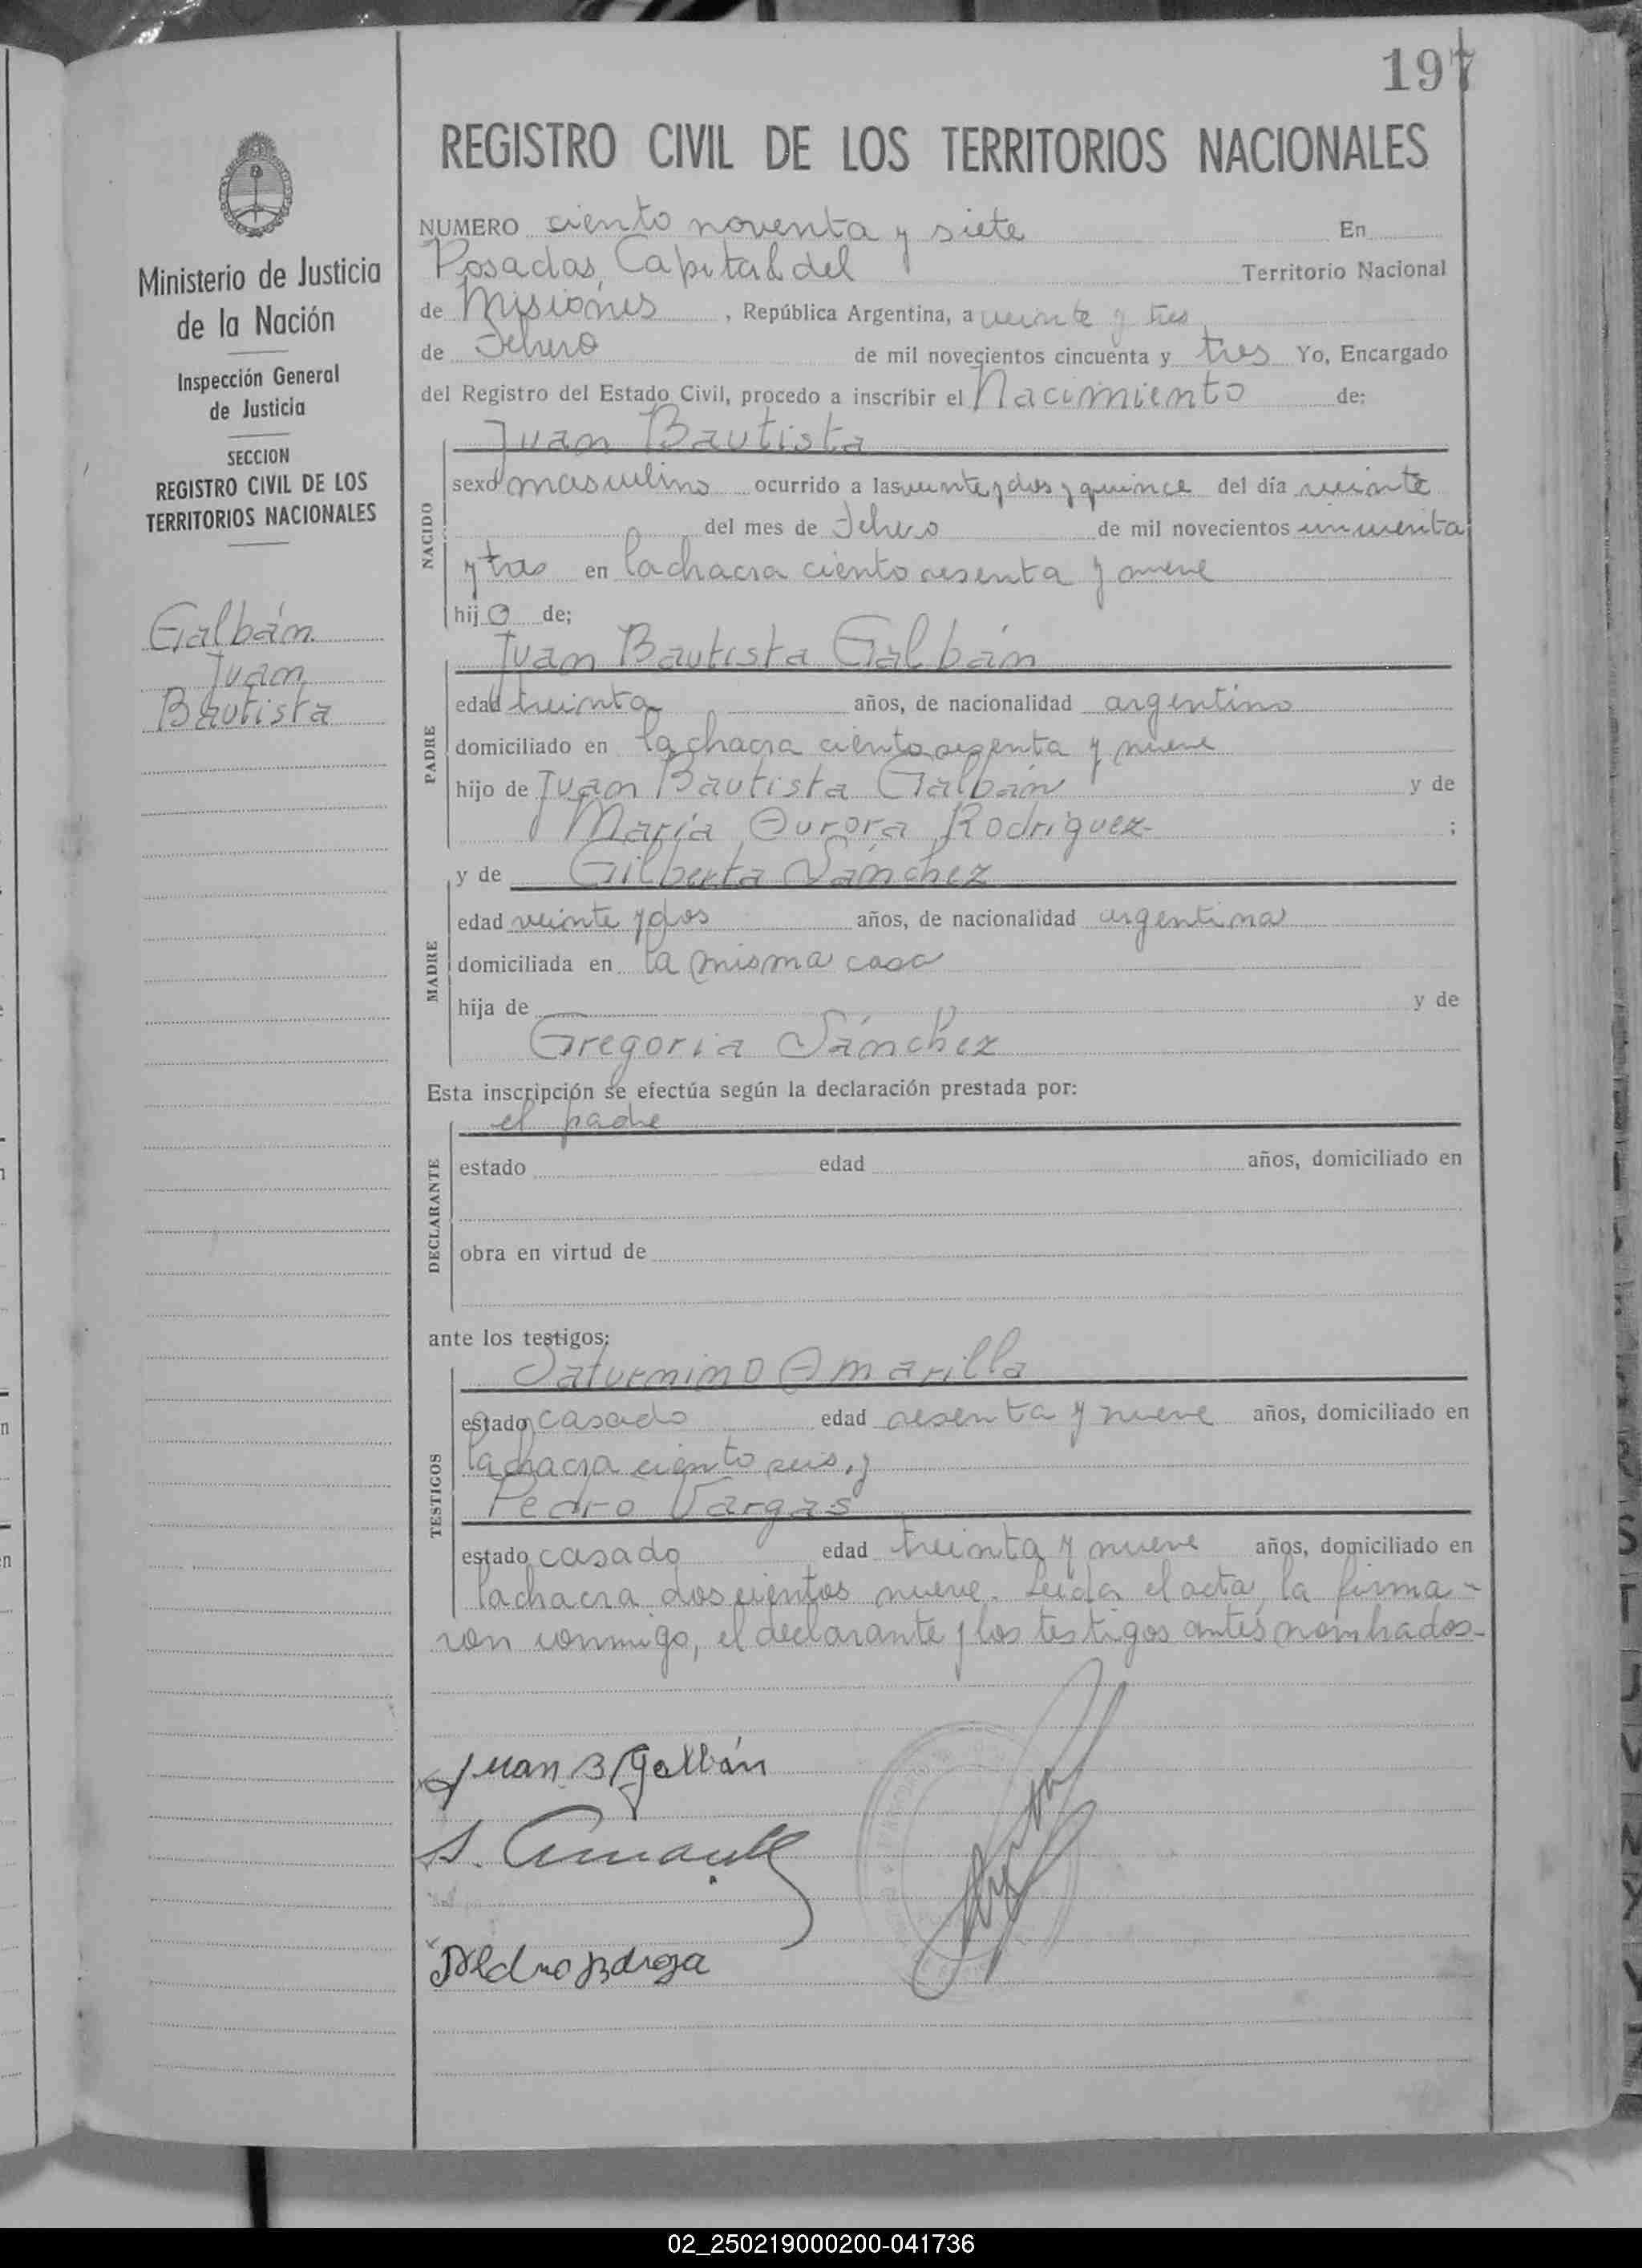 197
REGISTRO CIVIL DE LOS TERRITORIOS NACIONALES
Ministerio de Justicia
de la Nación
Inspección General
de Justicia
SECCION
REGISTRO CIVIL DE LOS
TERRITORIOS NACIONALES
Galbán
Juan
Bautista
NUMERO ciento noventa y siete En
Posadas, Capital del Territorio Nacional
de Misiones, República Argentina, a veinte y tres
de Febrero de mil novecientos cincuenta y tres Yo, Encargado
del Registro del Estado Civil, procedo a inscribir el Nacimiento de:
NACIDO
Juan Bautista
sexo masculino ocurrido a las veinte y dos y quince del día veinte
del mes de Febrero de mil novecientos cincuenta
y tres en la chacra ciento sesenta y nueve
hijo de;
PADRE
Juan Bautista Galbán
edad treinta años, de nacionalidad argentino
domiciliado en la chacra ciento sesenta y nueve
hijo de Juan Bautista Galbán y de
María Aurora Rodríguez- ;
MADRE
y de Gilberta Sánchez
edad veinte y dos años, de nacionalidad argentina
domiciliada en la misma casa
hija de y de
Gregoria Sánchez
Esta inscripción se efectúa según la declaración prestada por:
DECLARANTE
el padre
estado edad años, domiciliado en
obra en virtud de
ante los testigos;
TESTIGOS
Saturnino Amarilla
estado casado edad sesenta y nueve años, domiciliado en
la chacra ciento seis, y
Pedro Vargas
estado casado edad treinta y nueve años, domiciliado en
la chacra doscientos nueve. Leída el acta, la firma-
ron conmigo, el declarante y los testigos antes nombrados-
Juan B Galbán
S. Amarilla
02_250219000200-041736